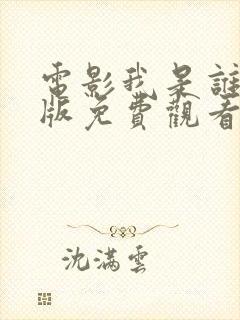 電影我是誰
版免費觀看
沈滿雲